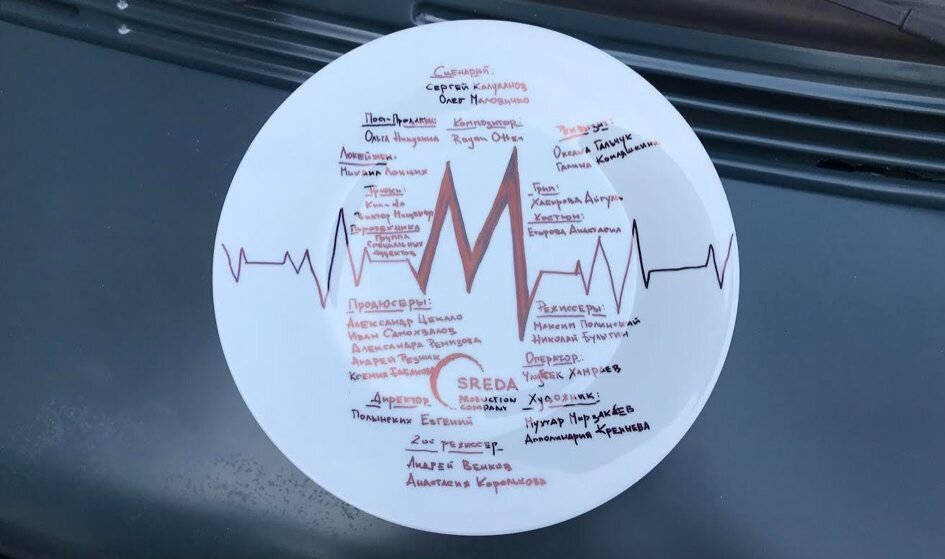 Сценарий:
Сергей Калужанов
Олег Маловичко
Пост-Продакшн:
Ольга Никулина
Композитор:
Ryan Otter
Реквизит:
Оксана Гальчук
Галина Комляшкина
Локейшен:
Михаил Локших
Трюки:
Виктор Мищенко
Пиротехника
Группа
Специальных
эффектов
Грип:
Хабирова Айгуль
Костюм:
Егорова Анастасия
М
Продюсеры:
Александр Цекало
Иван Самохвалов
Александра Ремизова
Андрей Резник
Ксения
Режиссеры:
Максим Полинский
Николай Булыгин
Оператор:
Улугбек Хамраев
SREDA
PRODUCTION
COMPANY
Директор
Полынских Евгений
Художник:
Мухтар Мирзакеев
Апполинария Крепнева
2ой режиссер
Андрей Венков
Анастасия Королькова